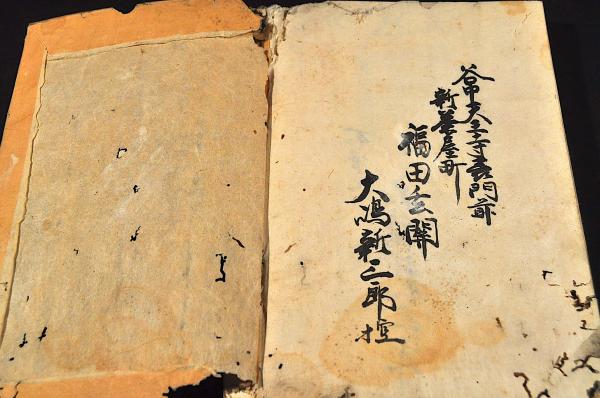 谷中天王寺表門前
新茶屋町
福田玄関
大嶋新三郎控